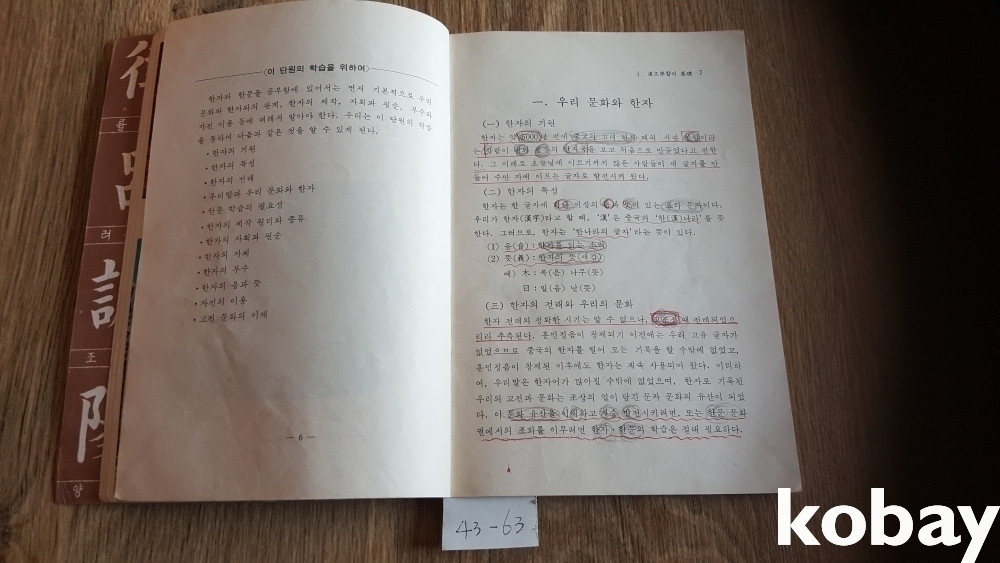 〈이 단원의 학습을 위하여〉
한자와 한문을 공부함에 있어서는 먼저 기본적으로 우리
문화와 한자와의 관계, 한자의 제작, 자획과 필순, 부수와
자전 이용 등에 대해서 알아야 한다. 우리는 이 단원의 학습
을 통하여 다음과 같은 것을 알 수 있게 된다.
• 한자의 기원
• 한자의 특성
• 한자의 전래
• 우리말과 우리 문화와 한자
• 한문 학습의 필요성
• 한자의 제작 원리와 종류
• 한자의 자획과 필순
• 한자의 자체
• 한자의 부수
• 한자의 음과 뜻
• 자전의 이용
• 고전 문화의 이해
— 6 —
Ⅰ. 漢文學習의 基礎 7
一. 우리 문화와 한자
(一) 한자의 기원
한자는 약 5000년 전에 중국의 고대 황제 때의 사관 창힐이라
는 사람이 새와 짐승의 발자국을 보고 처음으로 만들었다고 전한
다. 그 이래로 오늘날에 이르기까지 많은 사람들이 새 글자를 만
들어 수만 자에 이르는 글자로 발전시켜 왔다.
(二) 한자의 특성
한자는 한 글자에 이상의 음과 뜻이 있는 표의 문자이다.
우리가 한자(漢字)라고 할 때, ‘漢’은 중국의 ‘한(漢)나라’를 뜻
한다. 그러므로, 한자는 ‘한나라의 글자’라는 뜻이 있다.
(1) 음(音) : 한자를 읽는 소리
(2) 뜻(義) : 한자의 뜻(새김)
예) 木 : 목(음) 나무(뜻)
日 : 일(음) 날(뜻)
(三) 한자의 전래와 우리의 문화
한자 전래의 정확한 시기는 알 수 없으나, 때 전래되었으
리라 추측된다. 훈민정음이 창제되기 이전에는 우리 고유 글자가
없었으므로 중국의 한자를 빌어 모든 기록을 할 수밖에 없었고,
훈민정음이 창제된 이후에도 한자는 계속 사용되어 왔다. 이리하
여, 우리말은 한자어가 많아질 수밖에 없었으며, 한자로 기록된
우리의 고전과 문화는 조상의 얼이 담긴 문자 문화의 유산이 되었
다. 이 문화 유산을 이해하고 계승 발전시키려면, 또는 한문 문화
권에서의 조화를 이루려면 한자·한문의 학습은 절대 필요하다.
43-63
려
조
양
kobay